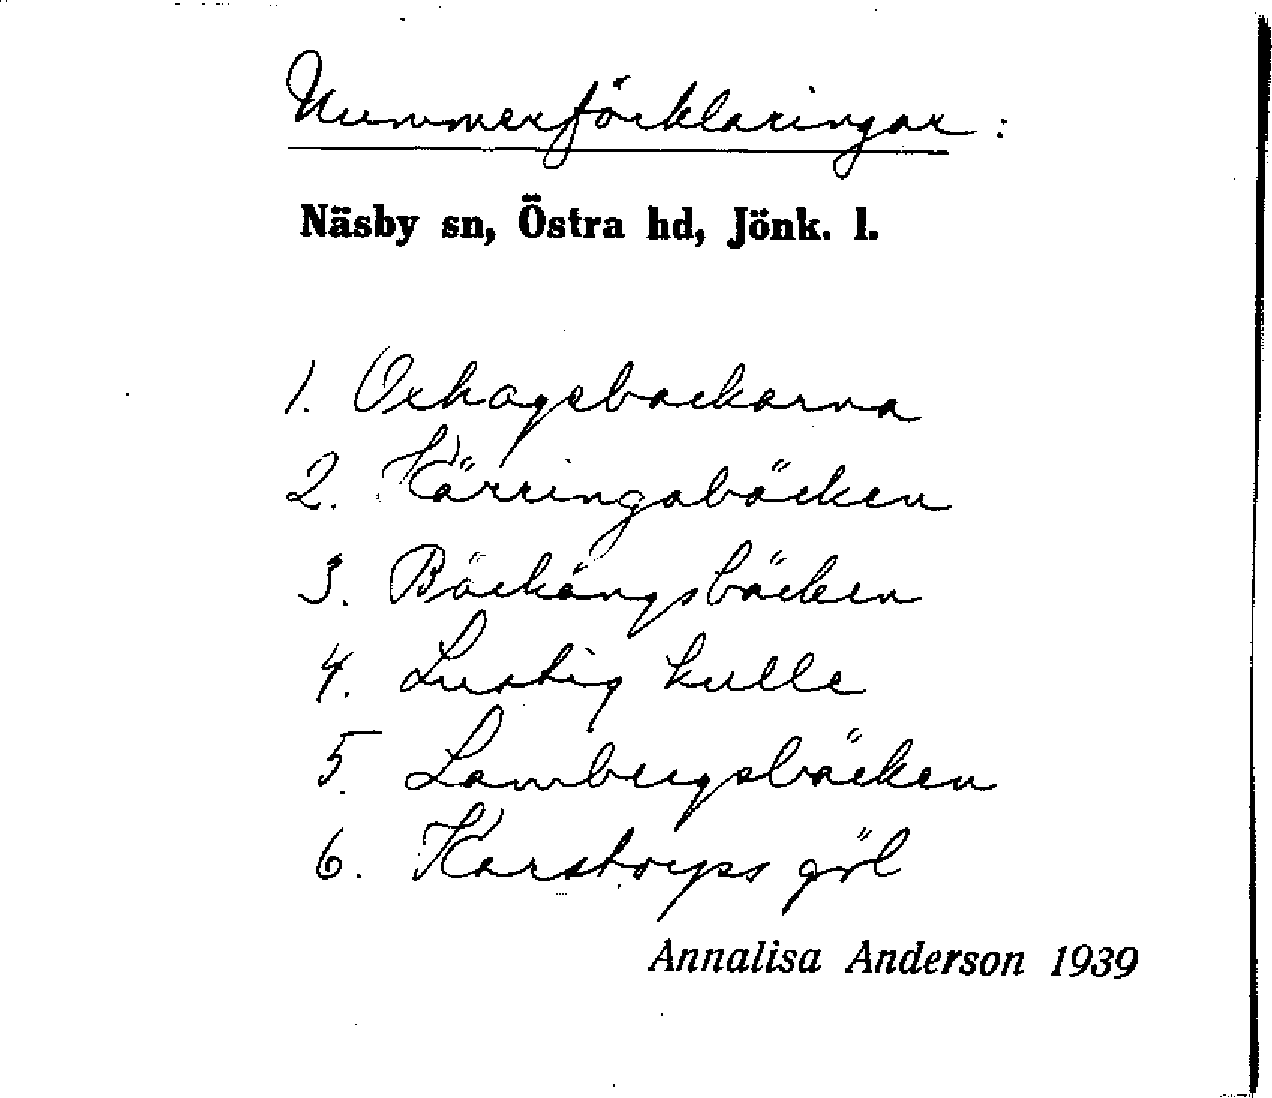 Nummerförklaringar:
Näsby sn, Östra hd, Jönk. l.
1. Oxhagsbackarna
2. Kärringabäcken
3. Bäckängsbäcken
4. Lustig kulle
5. Lambergsbäcken
6. Karstorps göl
Annalisa Anderson 1939